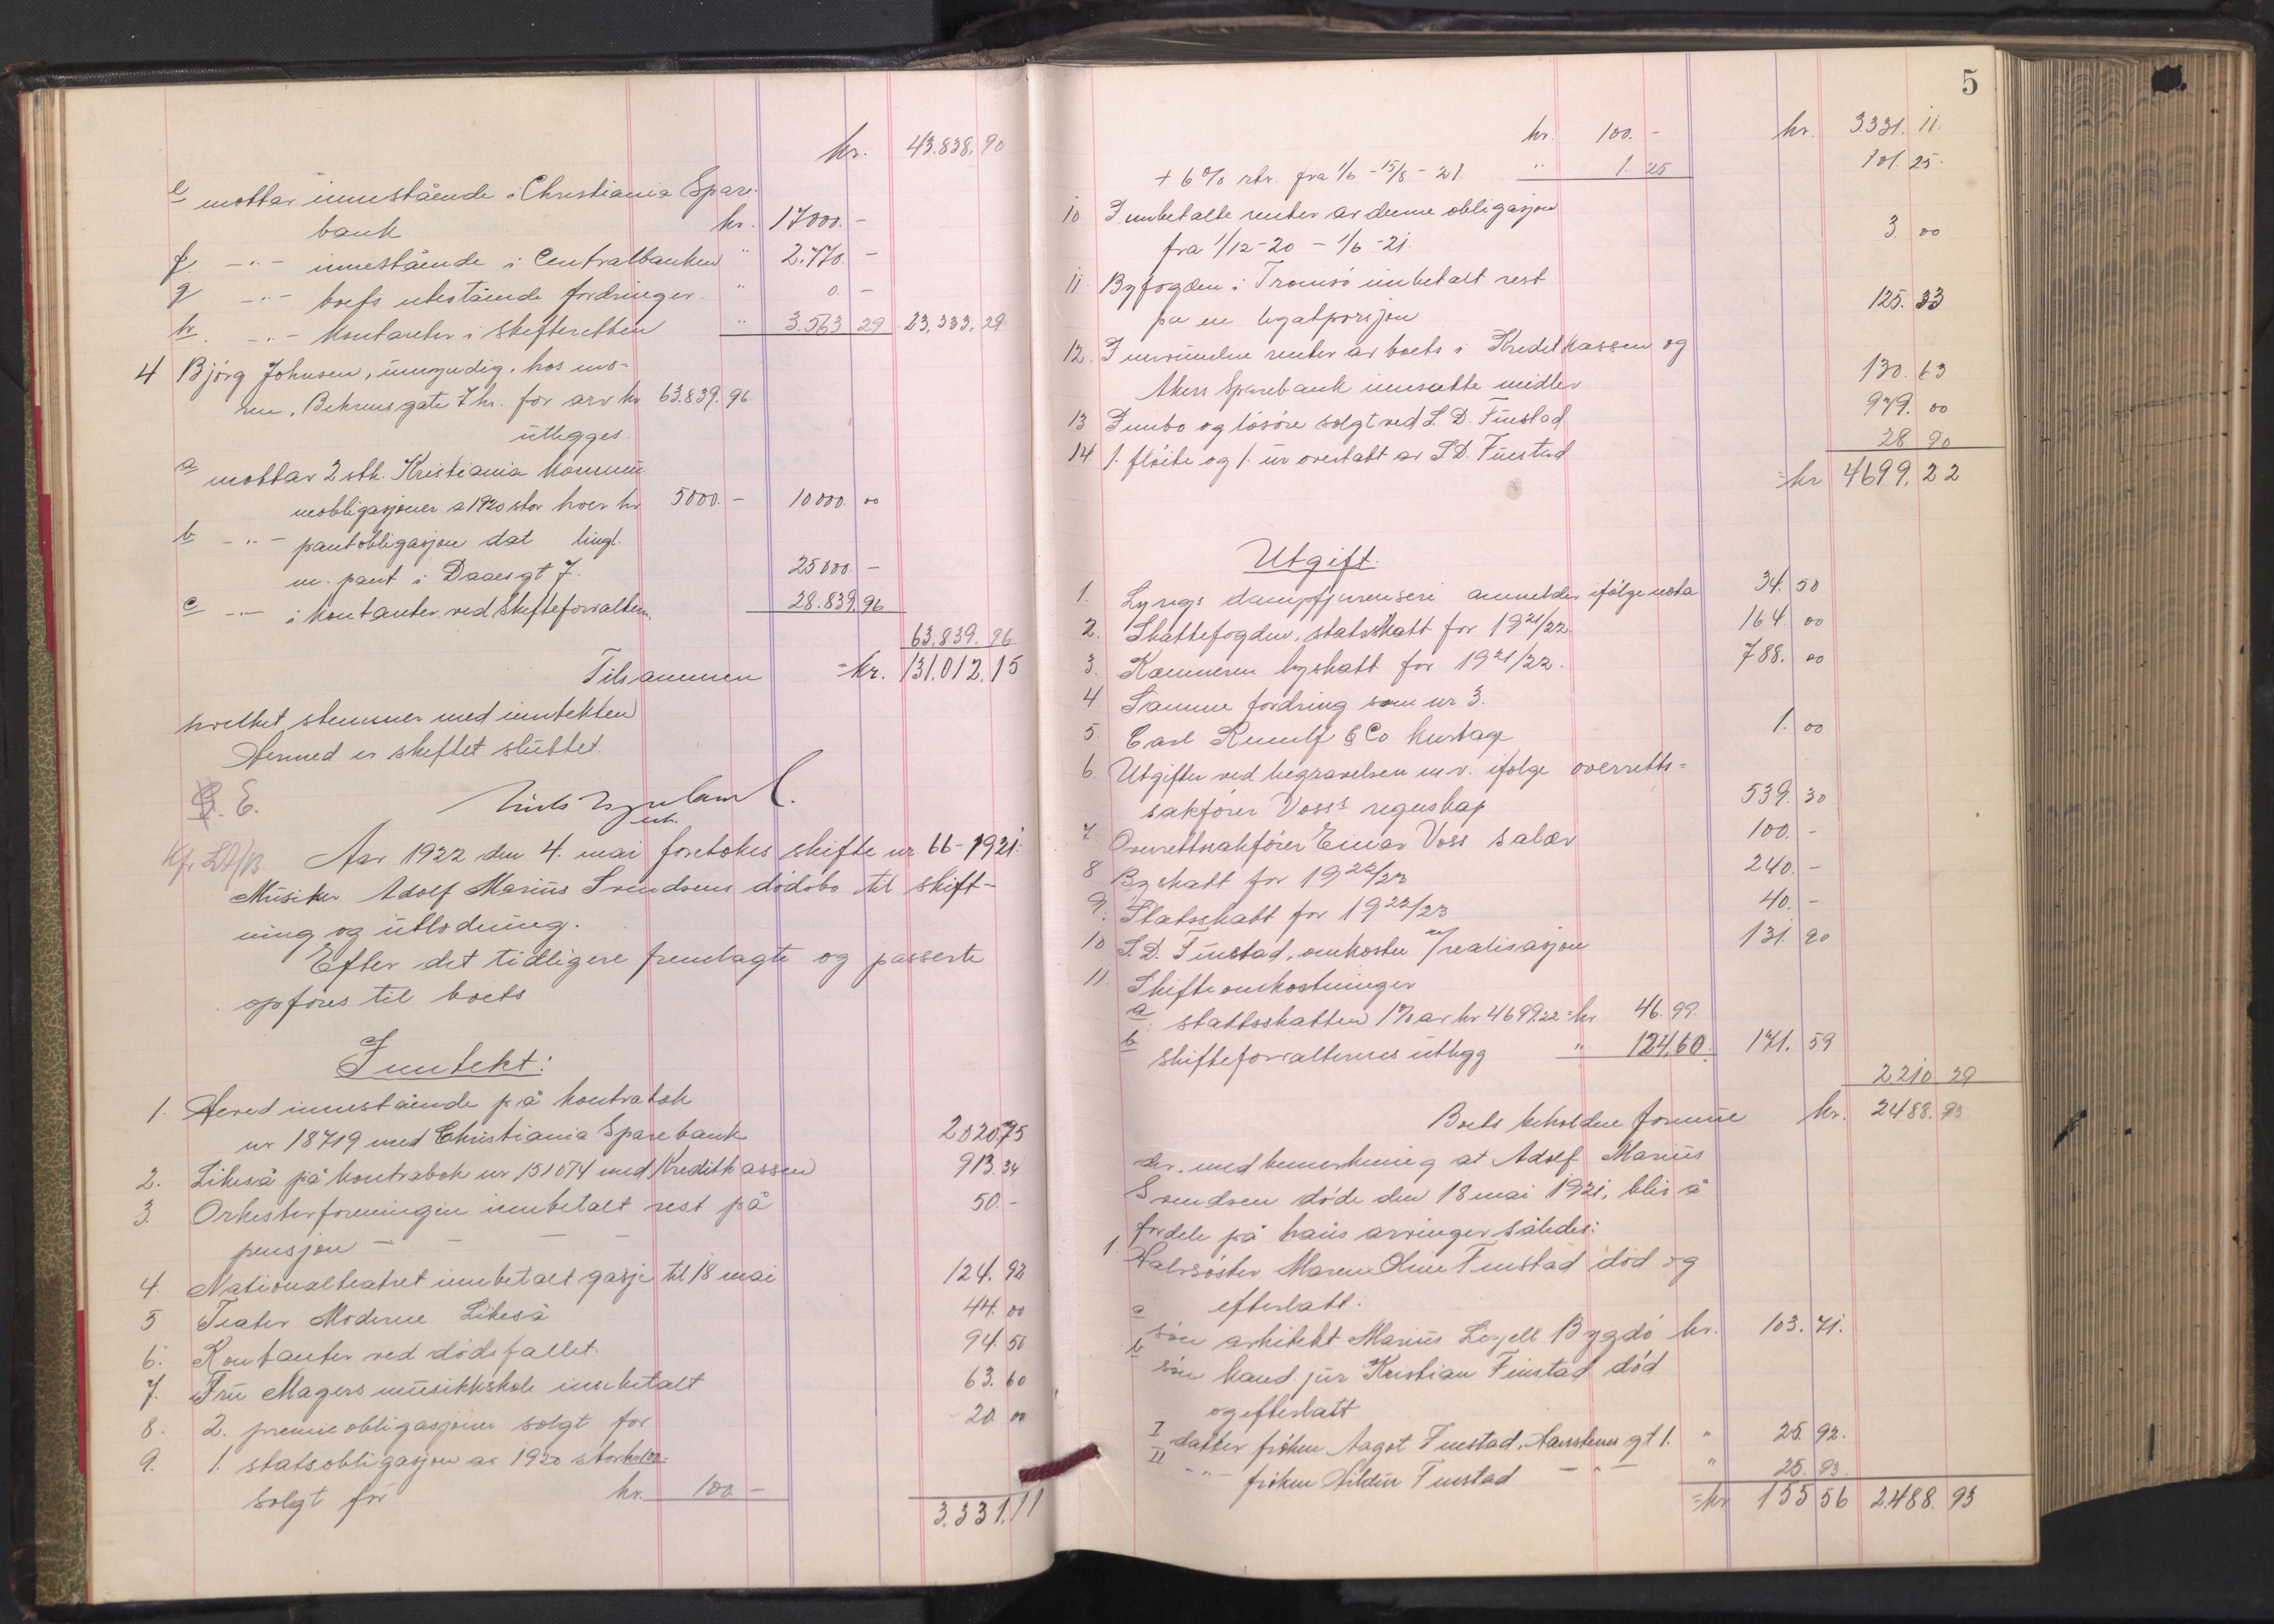 kr. 43.838.90
e mottar innestående i Christiania Spare-
bank kr. 17000.-
f. -"- innestående i Centralbanken " 2.770.-
g -"- boets utestående fordringer " 0.-
h. -"- kontanter i skifteretten " 3.563 29 23.333.29
4 Bjørg Johnsen, umyndig, hos mo-
ren, Behrensgate 7 hr. for arv kr 63.839.96
utlegges.
a mottar 2 stk. Kristiania kommu-
neobligasjoner a 1920 stor hver kr 5000.- 10000.00
b -"- pantobligasjon dat tingl.
m. pant i Daaesgt 7. 25000.-
c -"- i kontanter ved skifteforvalteren 28.839.96
63.839.96
Tilsammen =kr. 131.012.15
hvilket stemmer med inntekten
Hermed er skiftet sluttet.
E.
Aar 1922 den 4. mai foretokes skifte nr 66-1921:
Musiker Adolf Marius Svendsens dødsbo til skift-
ning og utlodning.
Efter det tidligere fremlagte og passerte
opføres til boets
Inntekt:
1. Herved innestående på kontrabok
nr 18719 med Christiania Sparebank 2020.75
2. Likeså på kontrabok nr 151074 med Kreditkassen 913.34
3. Orkesterforeningen innbetalt rest på 50.-
pensjon - - - -
4. Nationalteatret innbetalt gasje til 18 mai 124.92
5 Teater Moderne Likeså 44.00
6. Kontanter ved dødsfallet 94.50
7. Fru Magers musikkskole innbetalt 63.60
8. 2. premieobligasjoner solgt for 20 00
9. 1. statsobligasjon av 1920 stor kr 100
solgt for kr. 100 -
3.331.11
5
kr. 100.- kr. 3331.11.
+ 6% rtr. fra 1/6 - 15/8 - 21. " 1.25 101.25.
10 Innbetalte renter av denne obligasjon
fra 1/12-20 - 1/6-21. 3.00
11. Byfogden i Tromsø innbetalt rest
på en legatporsjon 125.33
12. Innvundne renter av boets i Kreditkassen og
Akers Sparebank innsatte midler 130.63
13 Innbo og løsøre solgt ved S. D. Finstad 979.00
14 1. fløite og 1. ur overtatt av S.D. Finstad 28 90
=kr 4699.22
Utgift.
1. Lyngs dampfjærrenseri anmelder ifølge nota 34.50
2. Skattefogden, statsskatt for 19 21/22. 164.00
3. Kæmneren byskatt for 19 21/22. 788.00
4 Samme fordring som nr 3.
5. Carl Rumlf & Co kurtage 1.00
6. Utgifter ved begravelsen m.v. ifølge overretts-
sakfører Voss's regnskap 539.30
7. Overrettssakfører Einar Voss salær 100.-
8 Byskatt for 19 22/23 240.-
9. Statsskatt for 19 22/23 40.-
10 S.D. Finstad, omkostn v/realisasjon 131.90
11. Skifteomkostninger
a statsskatten 1% av kr 4699.22 = kr 46.99.
b skifteforvalterens utlegg " 124.60. 171.59
2210 29
Boets beholdne formue kr. 2488.93
der, med bemerkning at Adolf Marius
Svendsen døde den 18 mai 1921, blir å
fordele på hans arvinger således:
1. Halvsøster Maren Oline Finstad død og
efterlatt.
a søn arkitekt Marius Bygdø kr. 103.71.
b søn kand. jur Kristian Finstad død
og efterlatt
I datter frøken Aagot Finstad, gt 1. " 25.92.
II -"- frøken Hildur Finstad -"- " 25.93
=kr 155 56 2488.93